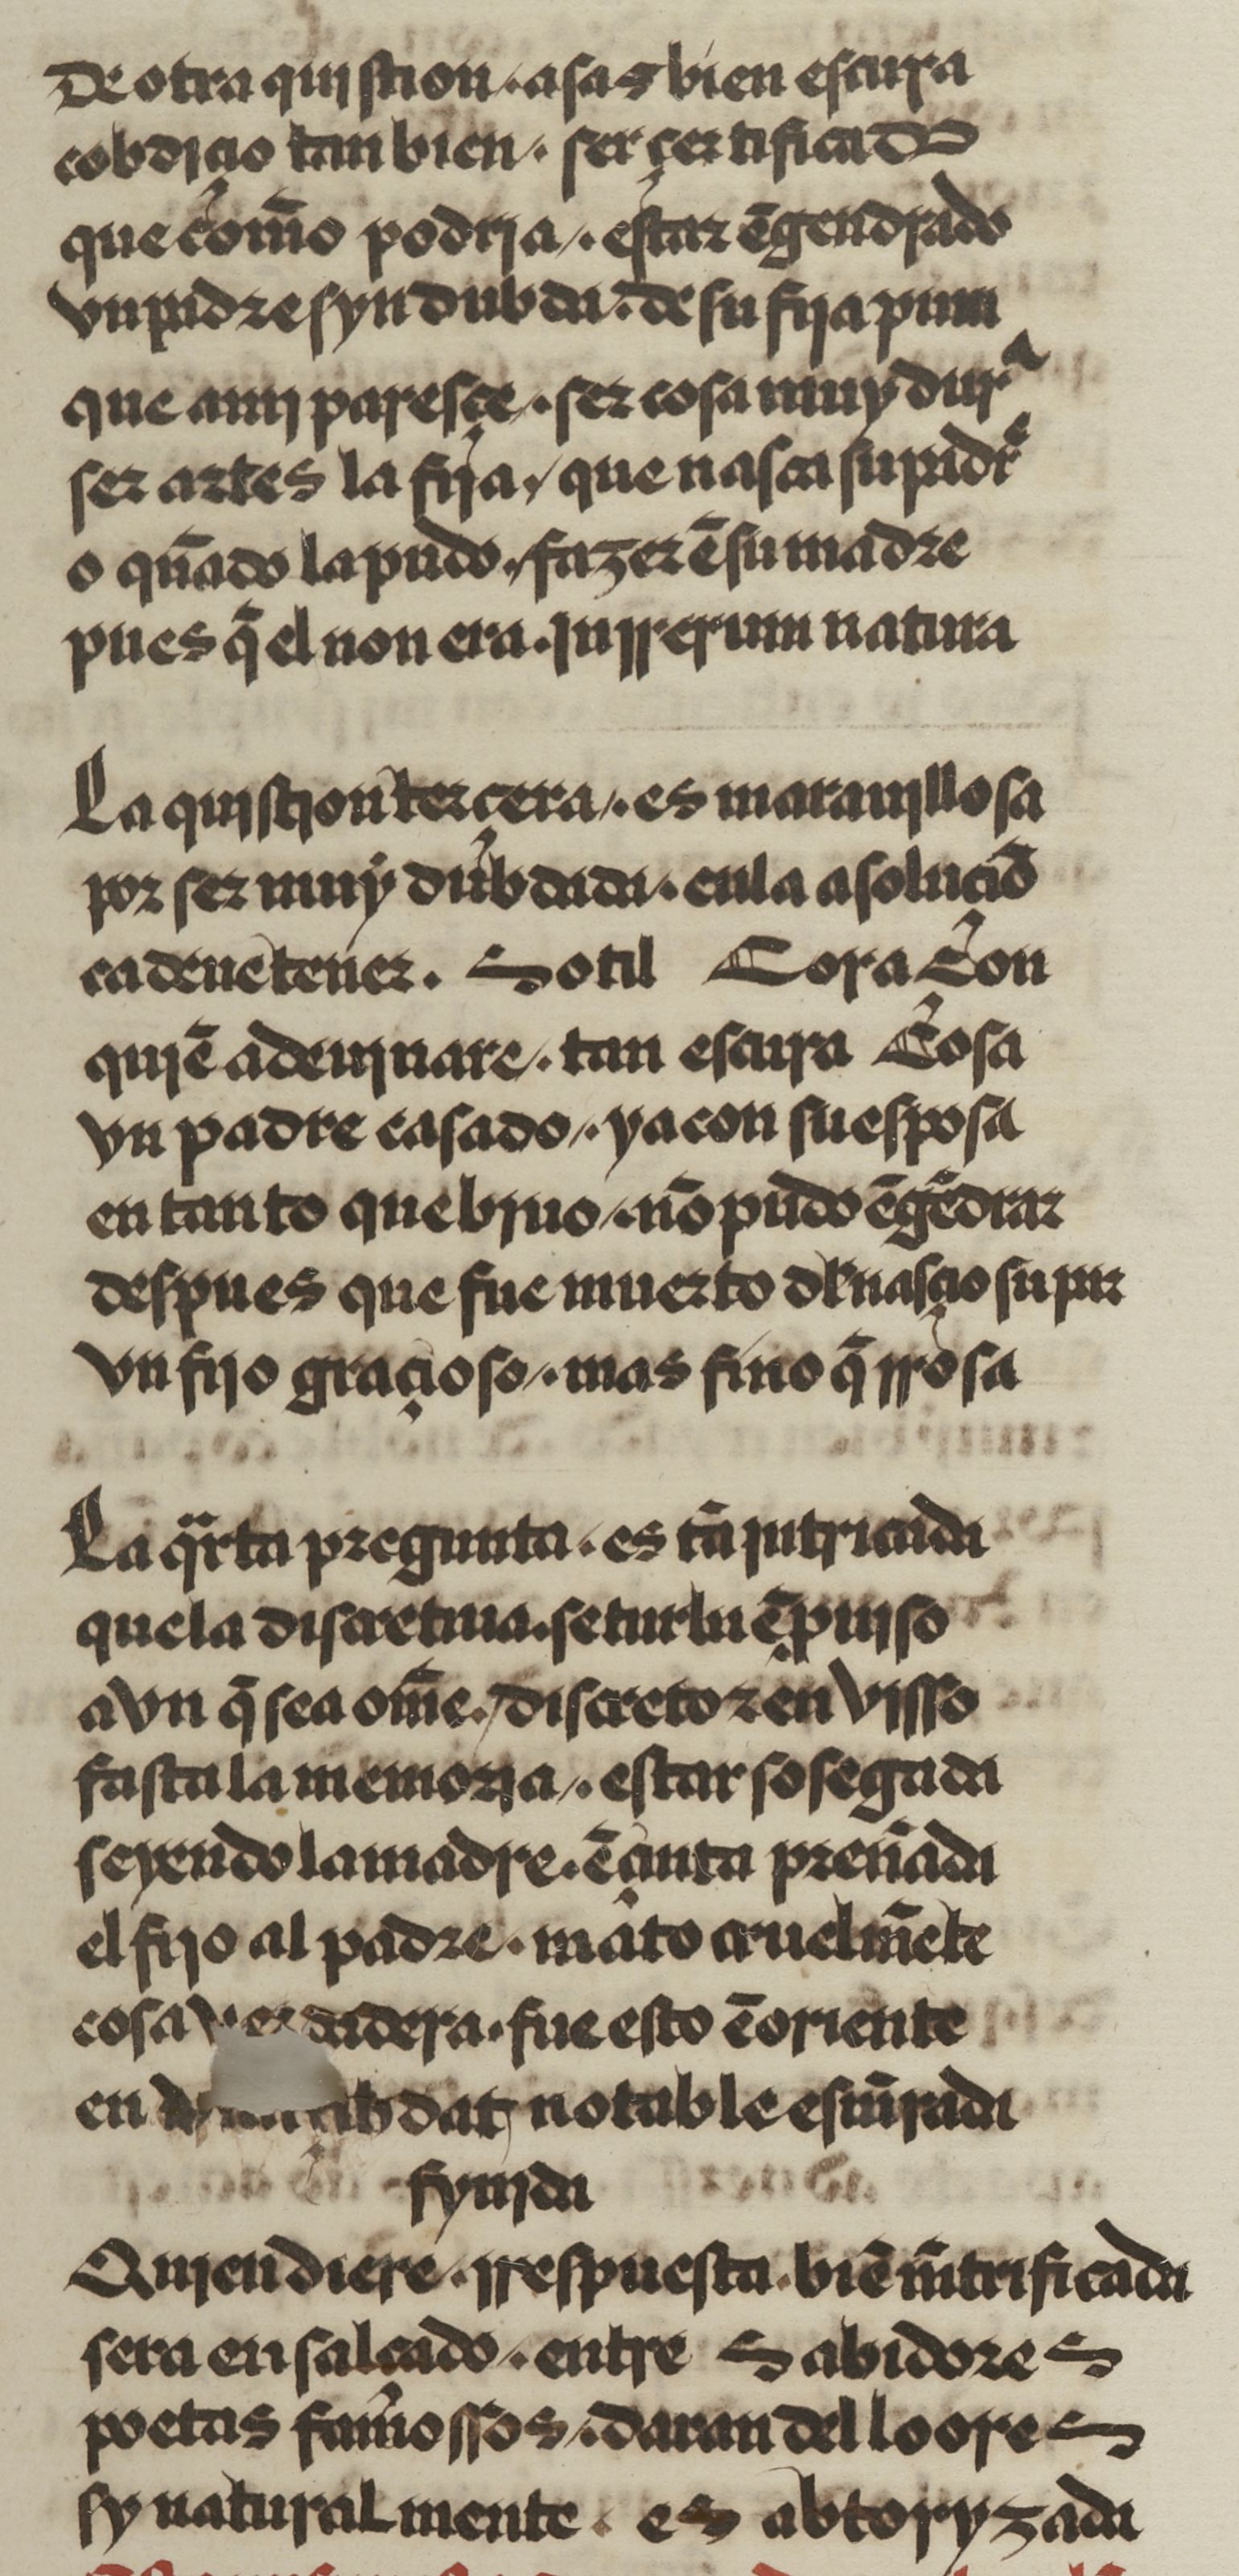 De otra quistion . asas bien escura
cobdiçio tan bien . ser çertificado
que com̃o podria . estar ẽgendrado
vn padre syn dubda . de su fija pura
que a mj paresçe . ser cosa muy durᵃ
ser artes la fija / que nasca su padrᵉ
o qũado la pudo / fazer ẽ su madre
pues q̃ el non era . jn rrerum natura
La quistion terçera . es marauillosa
por ser muy dubdada . en la asoluciõ
ca deue tener . Sotil Coraçon
quiẽ adeujnare . tan escura Cosa
vn padre casado . ya con su esposa
en tanto que biuo . nõ pudo ẽgẽdrar
despues que fue muerto dl̃ nasçio su par
vn fijo graçioso . mas fino q̃ rrosa
La q̈rta pregunta . es tã jntricada
que la discretiua . se turba ẽ proujso
avn q̃ sea om̃e . discreto z en visso
fasta la memoria . estar sosegada
seyendo la madre . ẽ çinta preñada
el fijo al padre . mãto cruelm̃ete
cosa verdadera . fue esto ẽ oriente
en çibdat notable esm̃rada
fynida
Quien diere . rrespuesta . biẽ m̃trificada
sera ensalçado . entre Sabidores
poetas famossos . daran del loores
sy naturalmente . es abtoryzada